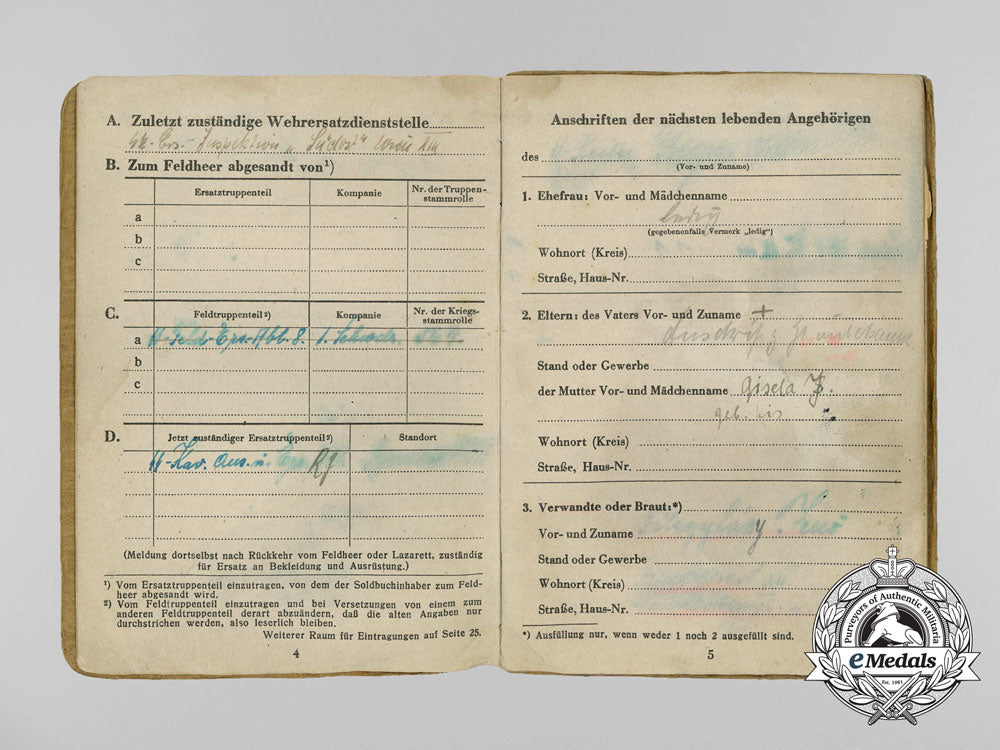 A. Zuletzt zuständige Wehrersatzdienststelle
B. Zum Feldheer abgesandt von¹)
Ersatztruppenteil
Kompanie
Nr. der Truppen-
stammrolle
a
b
c
C.
Feldtruppenteil²)
Kompanie
Nr. der Kriegs-
stammrolle
a
b
c
D.
Jetzt zuständiger Ersatztruppenteil²)
Standort
Kav. Aus. u.
(Meldung dortselbst nach Rückkehr vom Feldheer oder Lazarett, zuständig
für Ersatz an Bekleidung und Ausrüstung.)
¹) Vom Ersatztruppenteil einzutragen, von dem der Soldbuchinhaber zum Feld-
heer abgesandt wird.
²) Vom Feldtruppenteil einzutragen und bei Versetzungen von einem zum
anderen Feldtruppenteil derart abzuändern, daß die alten Angaben nur
durchstrichen werden, also leserlich bleiben.
Weiterer Raum für Eintragungen auf Seite 25.
4
Anschriften der nächsten lebenden Angehörigen
des
(Vor- und Zuname)
1. Ehefrau: Vor- und Mädchenname
ledig
(gegebenenfalls Vermerk „ledig")
Wohnort (Kreis)
Straße, Haus-Nr.
2. Eltern: des Vaters Vor- und Zuname +
Stand oder Gewerbe
der Mutter Vor- und Mädchenname Gisela
geb.
Wohnort (Kreis)
Straße, Haus-Nr.
3. Verwandte oder Braut:*)
Vor- und Zuname
Stand oder Gewerbe
Wohnort (Kreis)
Straße, Haus-Nr.
*) Ausfüllung nur, wenn weder 1 noch 2 ausgefüllt sind.
5
Purveyors of Authentic Militaria
eMedals
Est. 1981